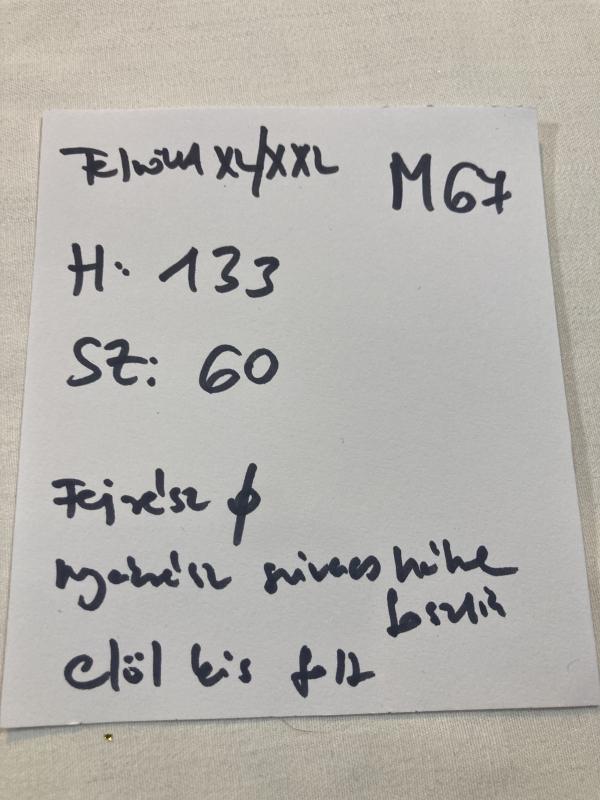 Felnőtt XL/XXL M67
H: 133
SZ: 60
Fejrész ϕ
nyakrész szivacs
foszlik
elöl kis folt